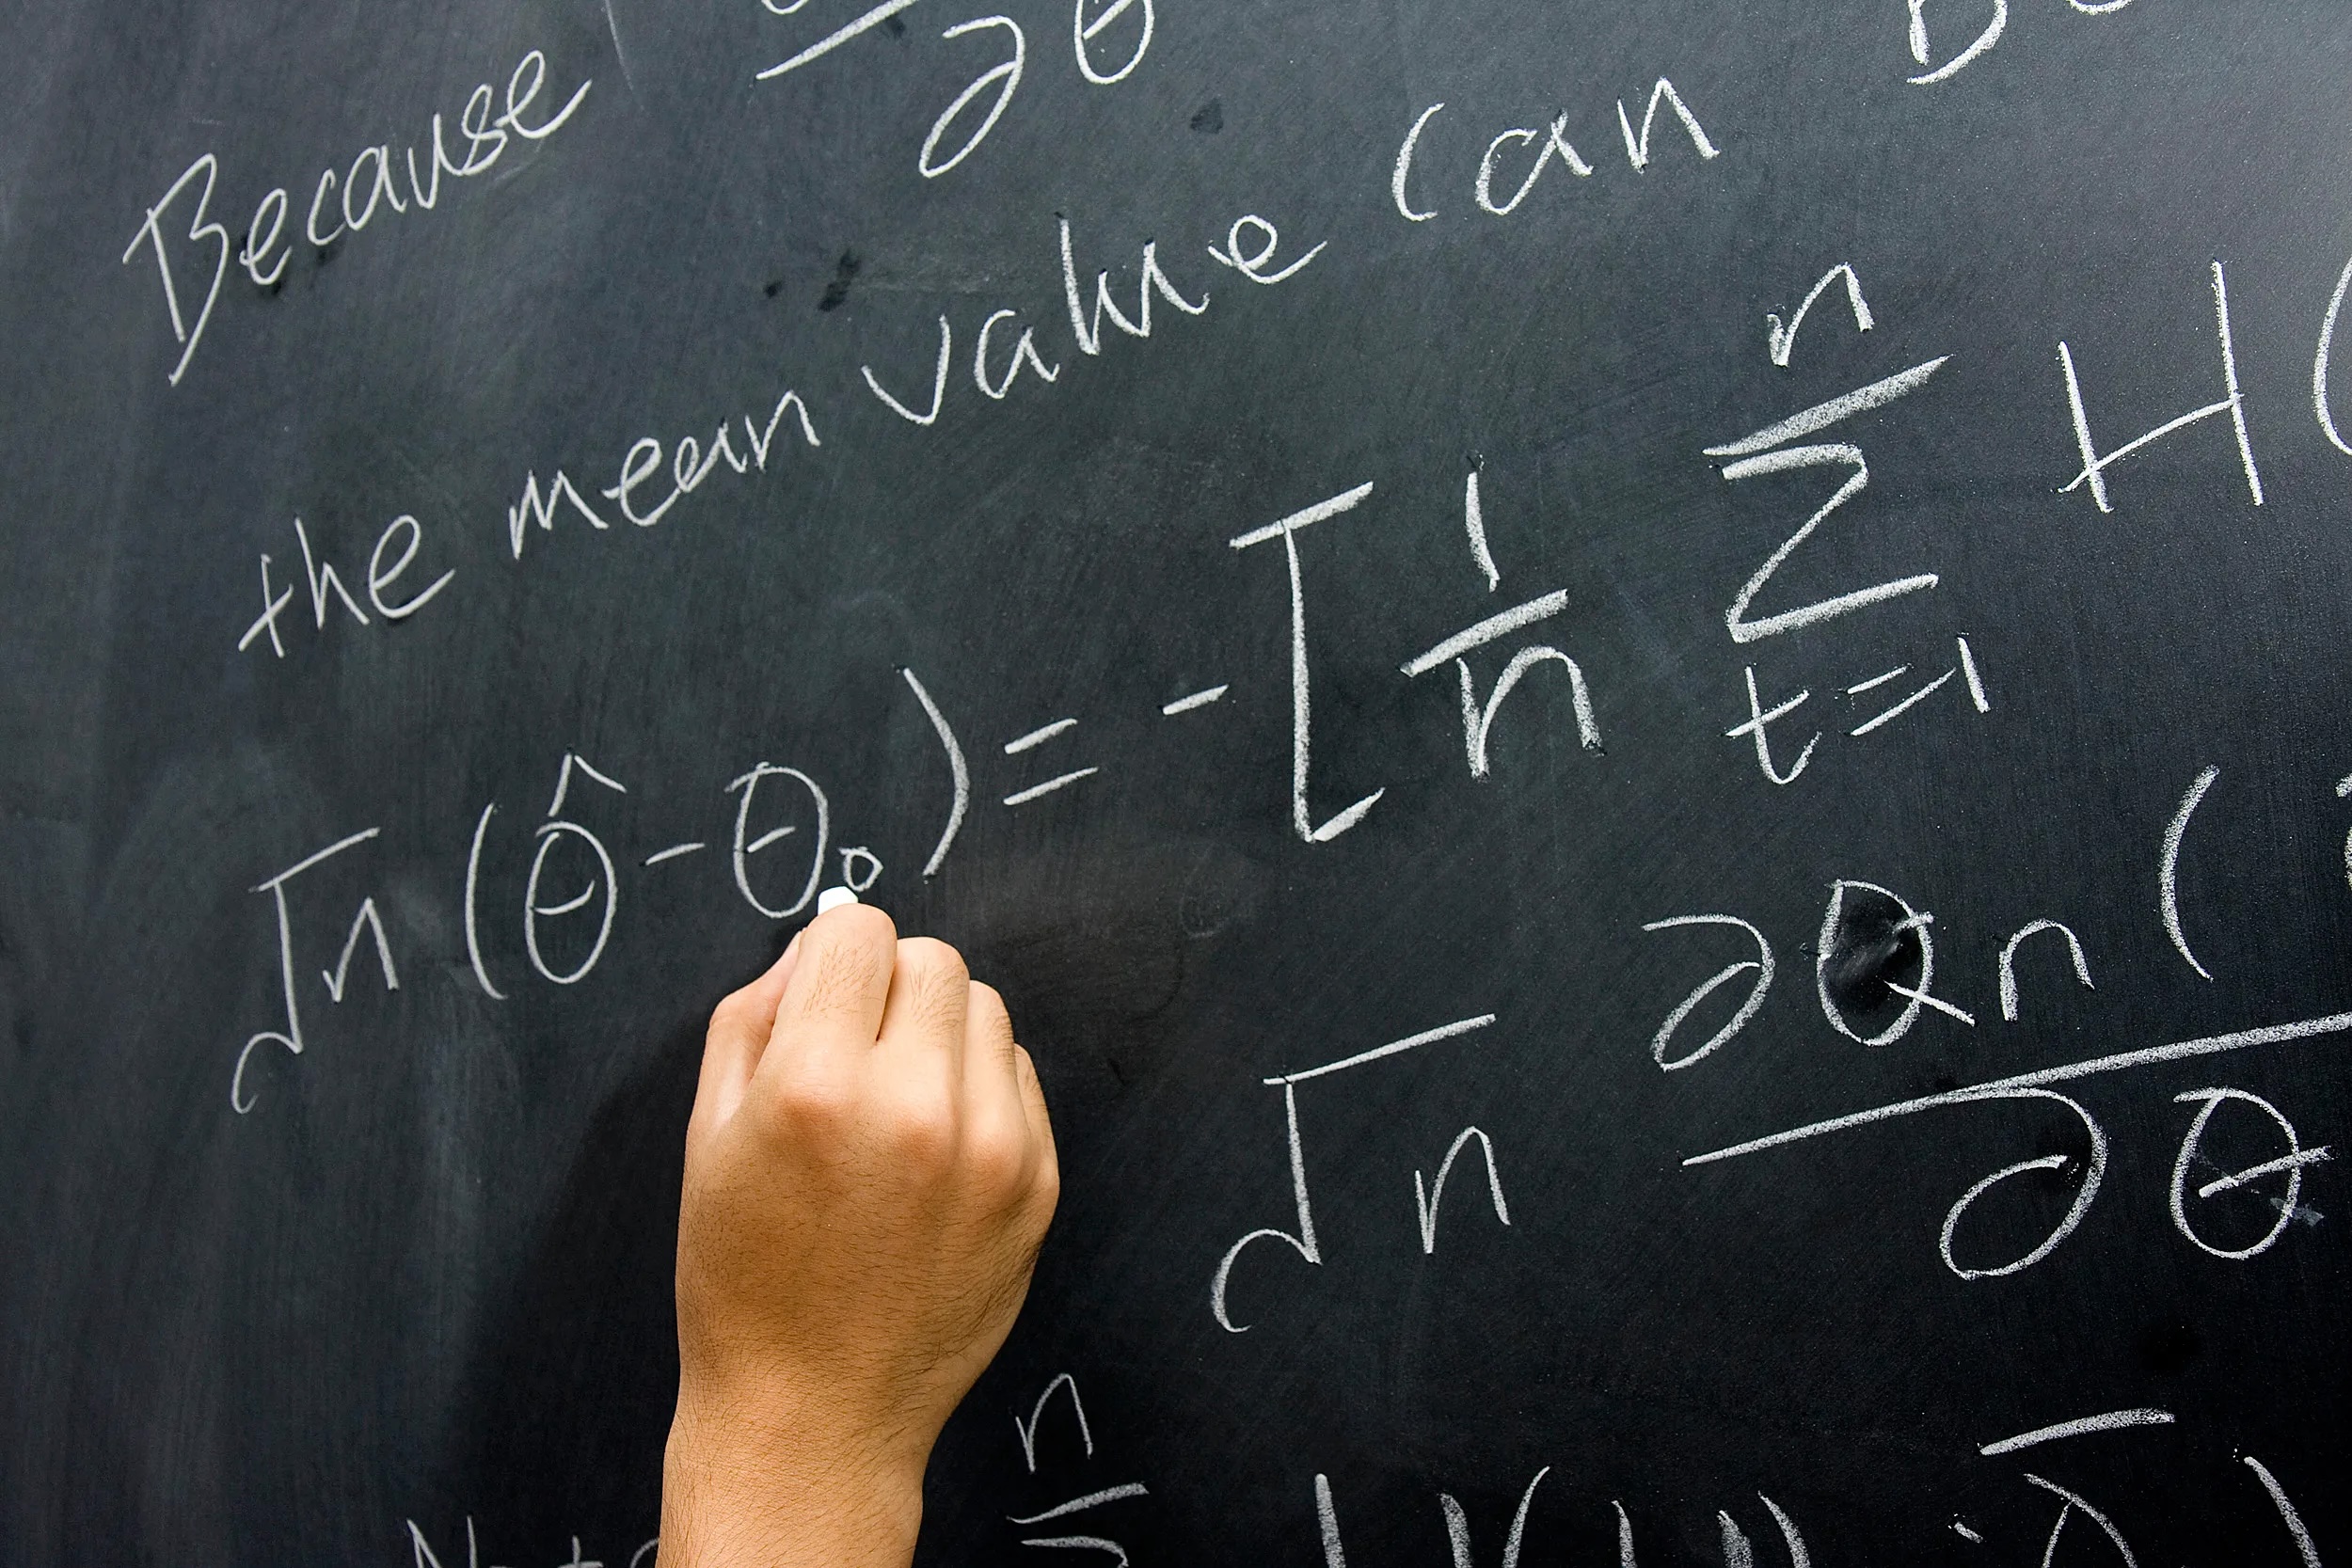 Because ∂θ
the mean value can
√n (θ̂ - θ₀) = - [ 1/n Σ_{t=1}^{n} H (
√n ∂Qn ( / ∂θ
n